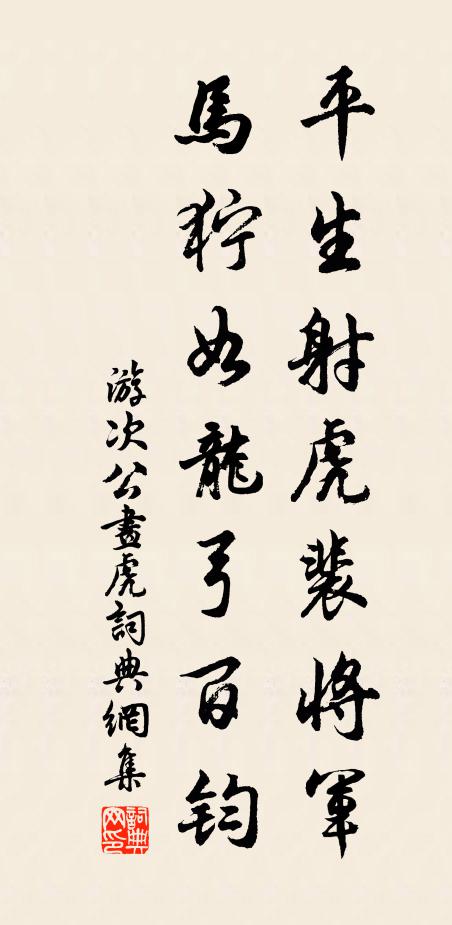 平生射虎裴將軍
馬狞如龍弓百鈞
游次公畫虎詞典網集
詞典網印